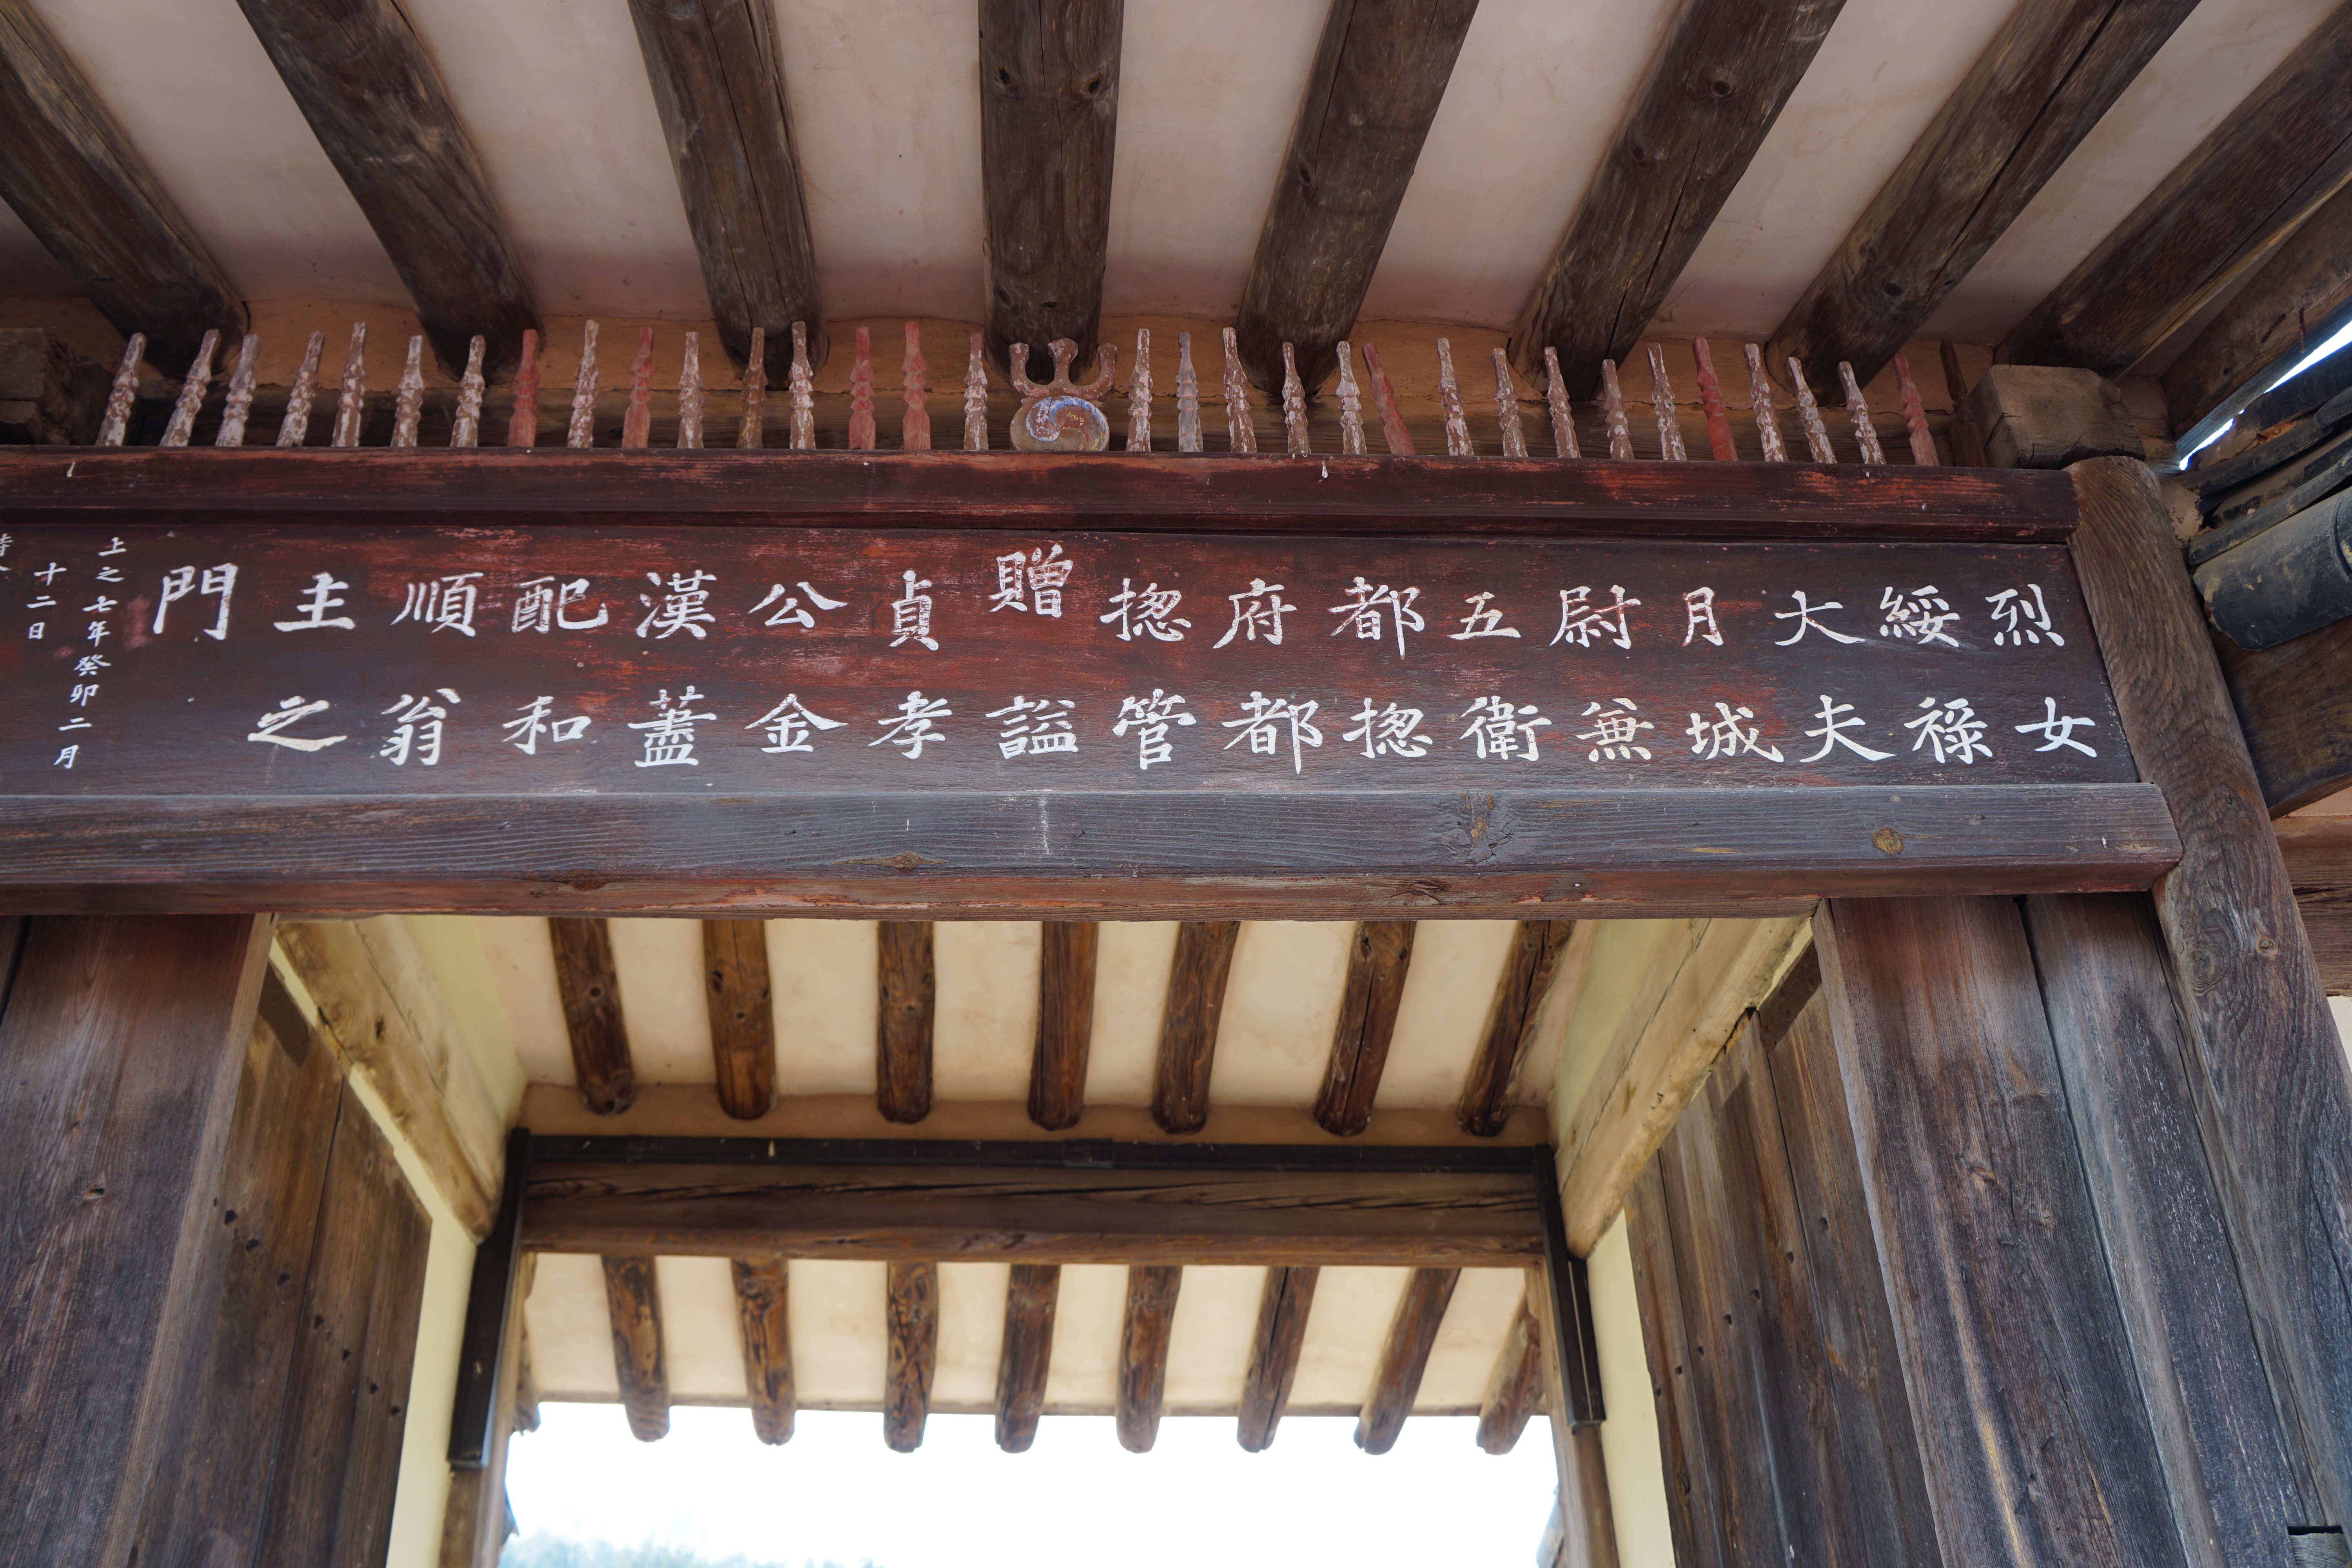 烈女
綏祿
大夫
月城
尉兼
五衛
都摠
府都
摠管
贈諡
貞孝
公金
漢藎
配和
順翁
主之
門
上之七年癸卯二月
十二日